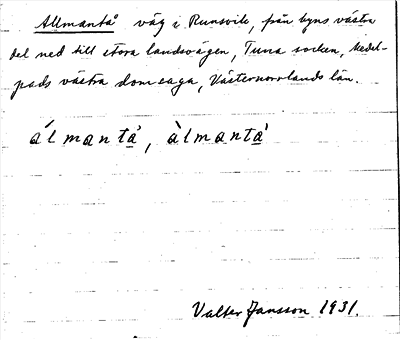 Allmantå väg i Runsvik, från byns västra
del ned till stora landsvägen, Tuna socken, Medel-
pads västra domsaga, Västernorrlands län.
álmantå̀, àlmantå̀
Valter Jansson 1931.